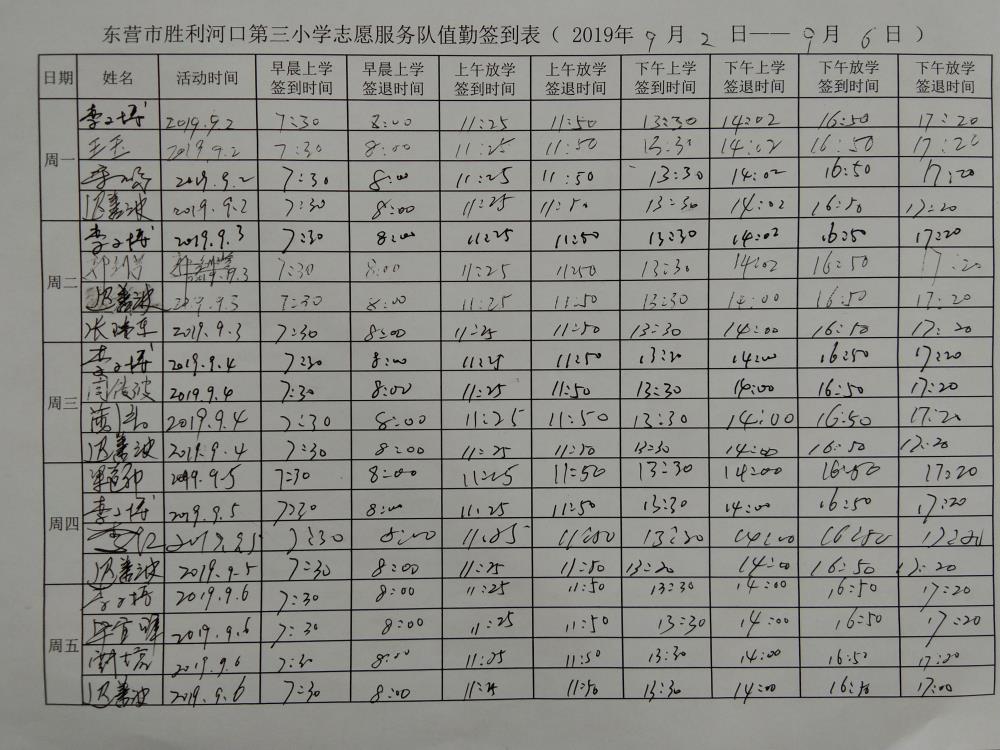 东营市胜利河口第三小学志愿服务队值勤签到表（ 2019年 9 月 2 日——9 月 6 日 ）
日期 姓名 活动时间 早晨上学签到时间 早晨上学签退时间 上午放学签到时间 上午放学签退时间 下午上学签到时间 下午上学签退时间 下午放学签到时间 下午放学签退时间
周一 2019.9.2 7:30 8:00 11:25 11:50 13:30 14:02 16:50 17:20
2019.9.2 7:30 8:00 11:25 11:50 13:30 14:02 16:50 17:20
2019.9.2 7:30 8:00 11:25 11:50 13:30 14:02 16:50 17:20
2019.9.2 7:30 8:00 11:25 11:50 13:30 14:02 16:50 17:20
周二 2019.9.3 7:30 8:00 11:25 11:50 13:30 14:02 16:50 17:20
7:30 8:00 11:25 11:50 13:30 14:02 16:50 17:20
2019.9.3 7:30 8:00 11:25 11:50 13:30 14:00 16:50 17:20
2019.9.3 7:30 8:00 11:25 11:50 13:30 14:00 16:50 17:20
周三 2019.9.4 7:30 8:00 11:25 11:50 13:20 14:00 16:50 17:20
2019.9.4 7:30 8:00 11:25 11:50 13:30 14:00 16:50 17:20
2019.9.4 7:30 8:00 11:25 11:50 13:30 14:00 16:50 17:20
2019.9.4 7:30 8:00 11:25 11:50 13:30 14:00 16:50 17:20
周四 2019.9.5 7:30 8:00 11:25 11:50 13:30 14:00 16:50 17:20
2019.9.5 7:30 8:00 11:25 11:50 13:30 14:00 16:50 17:20
2019.9.5 7:30 8:00 11:25 11:50 13:20 14:00 16:50
2019.9.5 7:30 8:00 11:25 11:50 13:20 14:00 16:50 17:20
周五 2019.9.6 7:30 8:00 11:25 11:50 13:30 14:00 16:50 17:20
2019.9.6 7:30 8:00 11:25 11:50 13:30 14:00 16:50 17:20
2019.9.6 7:30 8:00 11:25 11:50 13:30 14:00 16:50 17:20
2019.9.6 7:30 8:00 11:25 11:50 13:30 14:00 16:50 17:00